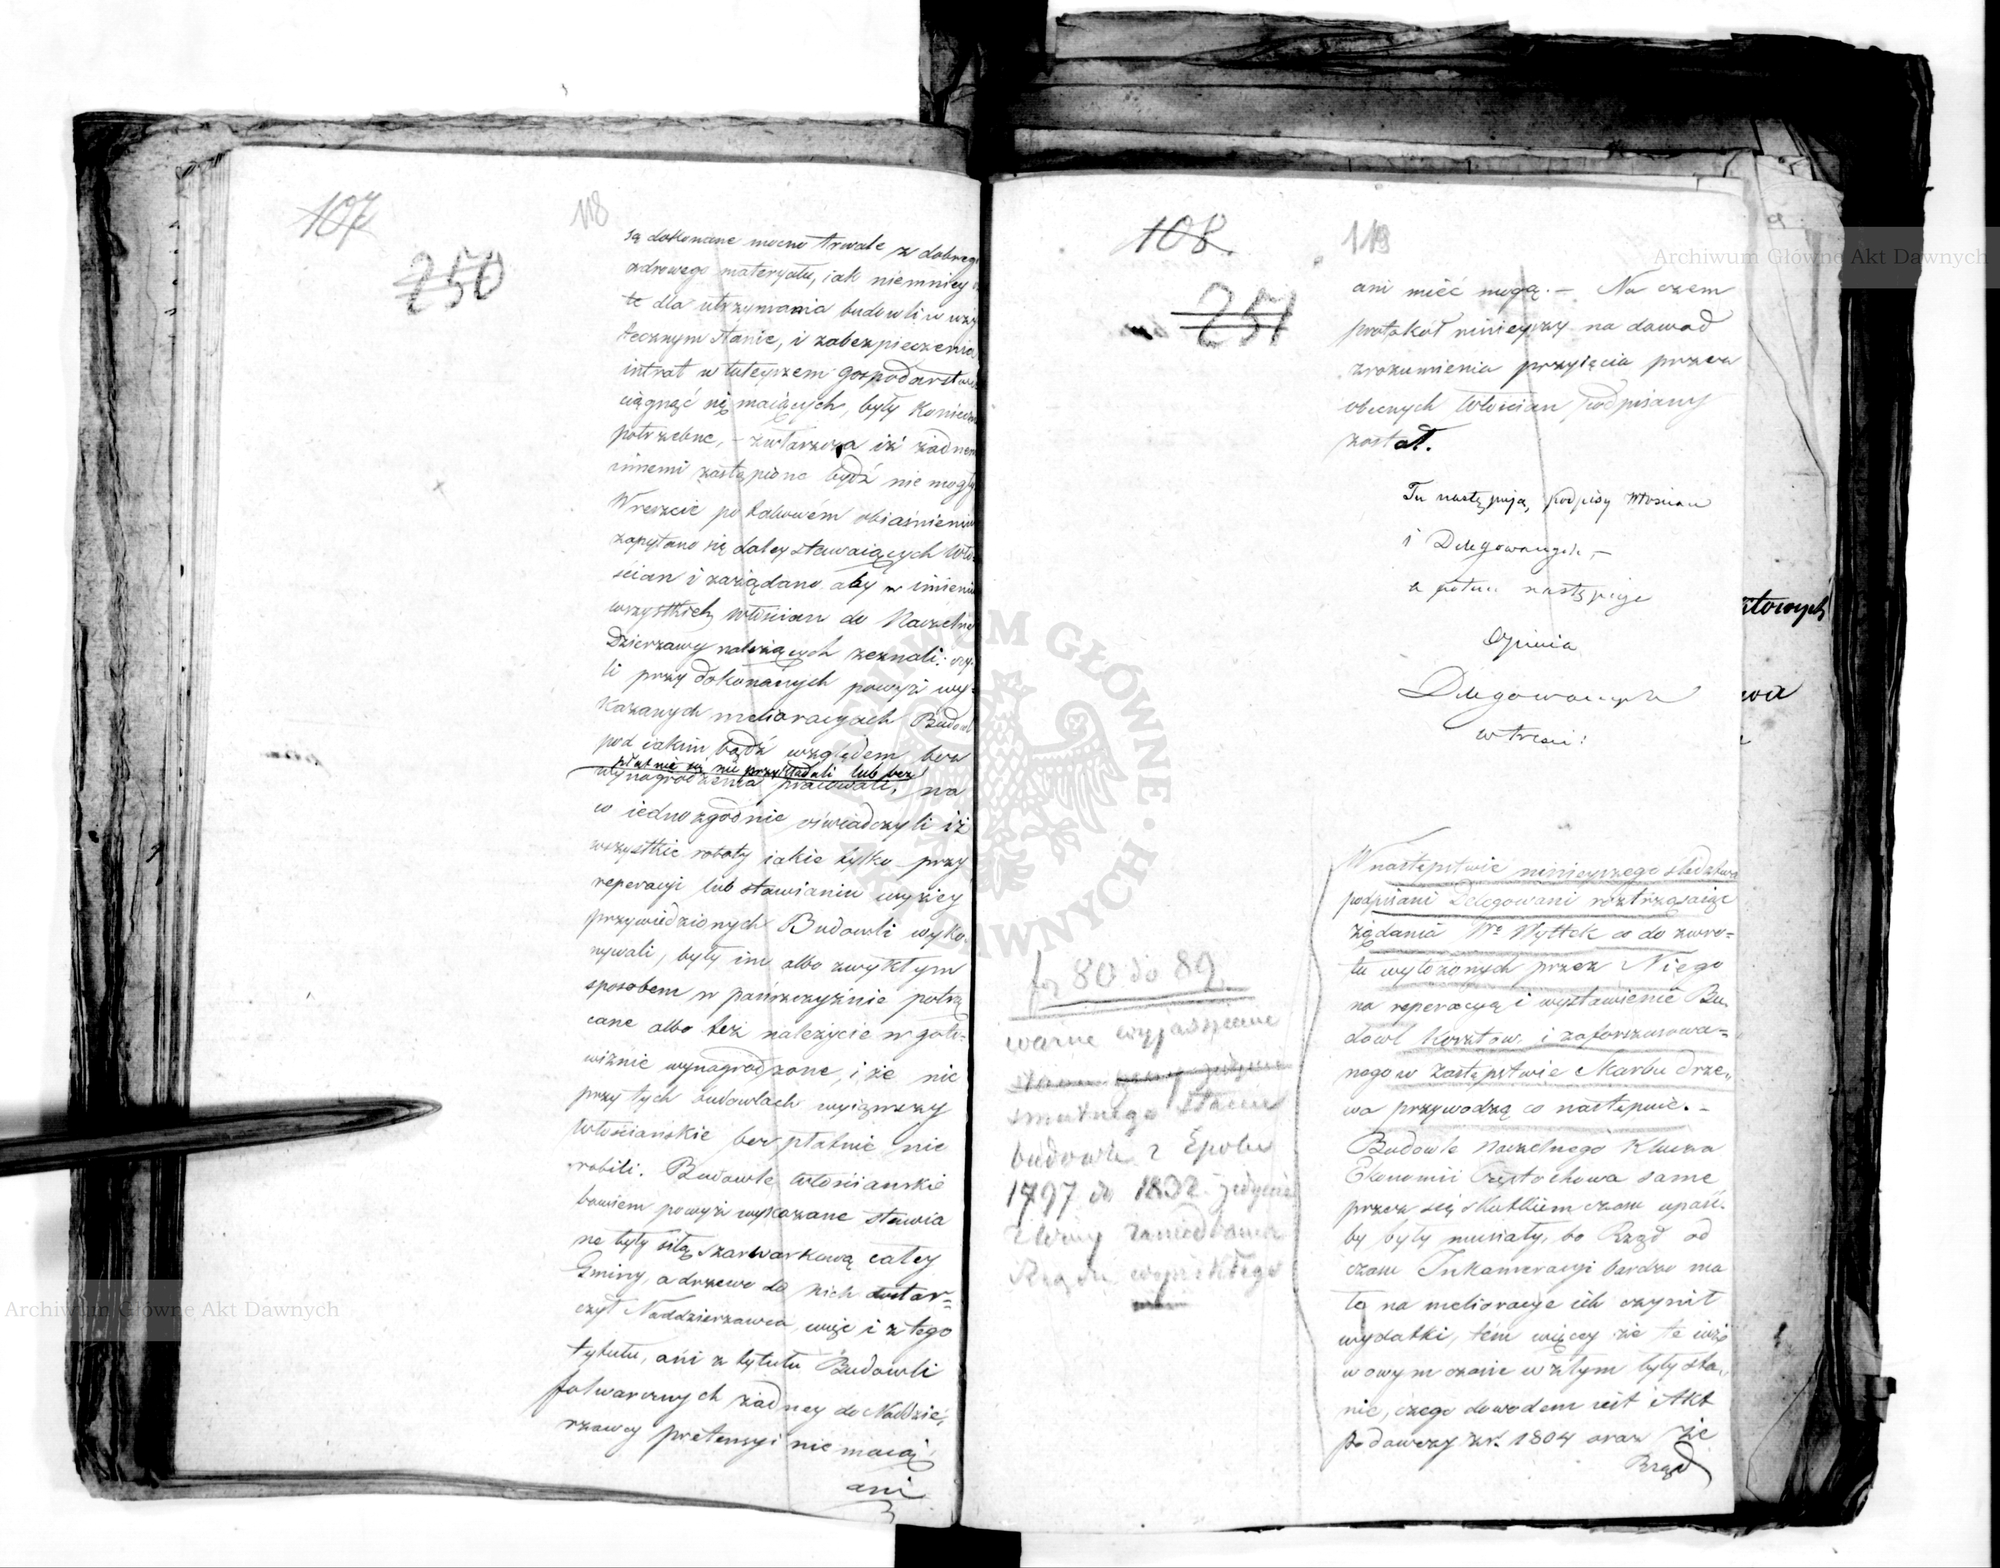 107
118
250
są dokonane mocno trwale z dobrego
zdrowego materyału, jak niemniey
te dla utrzymania budowli w uży
tecznym stanie, i zabezpieczenia
intrat w tuteyszem gospodarstwie
ciągnąć się maiących, były koniecznie
potrzebne, – zwłaszcza iż żadnemi
innemi zastąpione bydź nie mogły
Wreszcie po takowém obiaśnieniu
zapytano się daley stawaiących Wło-
ścian i zażądano aby w imieniu
wszystkich włościan do Naczelney
Dzierzawy należących zeznali: czy-
li przy dokonanych powyż wy-
kazanych melioracyach Budowl
pod iakim bądź względem bez
płatnie się nie przykładali lub bez
wynagrodzenia pracowali, na
co iednozgodnie oświadczyli iż
wszystkie roboty iakie tylko przy
reperacyi lub stawianiu wyżey
przywiedzionych Budowli wyko-
nywali, były im albo zwykłym
sposobem w pańszczyźnie potrą
cane albo też należycie w goto-
wiźnie wynagrodzone, i że nic
przy tych budowlach wyiąwszy
Włościańskie bezpłatnie nie
robili. Budowle włościańskie
bowiem powyż wykazane stawia
ne były siłą szarwarkową całey
Gminy, a drzewo do nich dostar-
czył Naddzierzawca, więc i z tego
tytułu, ani z tytułu Budowli
folwarcznych żadney do Naddzie-
rzawcy pretensyi nie maią
ani
108.
119
251
ani mieć mogą. – Na czem
protokół ninieyszy na dowód
zrozumienia przyięcia przez
obecnych Włościan podpisany
został.
Tu następują podpisy Włościan
i Delegowanych –
a potem następuje
Opinia
Delegowanych
w treści:
W następstwie ninieyszego śledztwa
podpisani Delegowani roztrząsaiąc
żądania Wo Wyttek co do zwro-
tu wyłożonych przez Niego
na reperacyą i wystawienie Bu-
dowl kosztów i zaforszusowa-
nego w zastępstwie Skarbu drze-
wa przywodzą co następuie. –
Budowle Naczelnego Klucza
Ekonomii Częstochowa same
przez się skutkiem czasu upaść-
by były musiały, bo Rząd od
czasu Inkameracyi bardzo ma
ło na melioracye ich czynił
wydatki, tém więcey że te iuż
w owym czasie w złym były sta-
nie, czego dowodem iest Akt
podawczy z r. 1804 oraz że
Rząd
fo 80 do 89.
ważne wyjaśnienie
smutnego stanu
budowli z Epoki
1797 do 1832 jedynie
z winy zaniedbania
Rządu wynikłego
Archiwum Główne Akt Dawnych
Archiwum Główne Akt Dawnych
ARCHIWUM GŁÓWNE AKT DAWNYCH